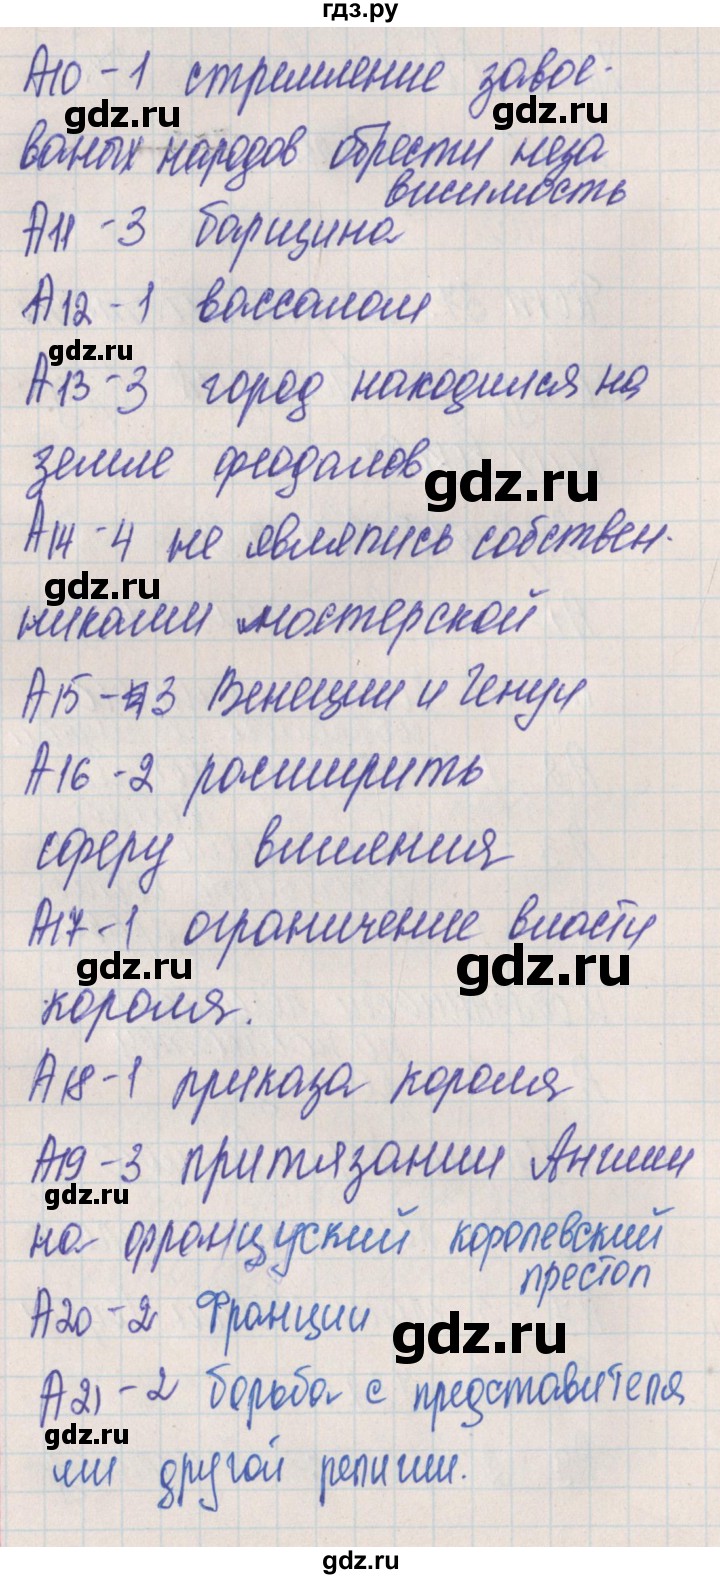 гдз.ру
А10 - 1 стремление завое-
gdz.ru gdz.ru
ваных народов обрести неза
висимость
А11 - 3 барщина
А12 - 1 вассалом
gdz.ru
А13 - 3 город находился на
земле феодалов
gdz.ru
А14 - 4 не являлись собствен-
gdz.ru
никами мастерской
А15 - 3 Венеции и Генуи
А16 - 2 расширить
сферу влияния
А17 - 1 ограничение власти
gdz.ru gdz.ru
короля.
А18 - 1 приказа короля
А19 - 3 притязании Англии
gdz.ru
на француский королевский
престол
А20 - 2 Франции
gdz.ru
А21 - 2 борьба с представителя
gdz.ru
ми другой религии.
gdz.ru